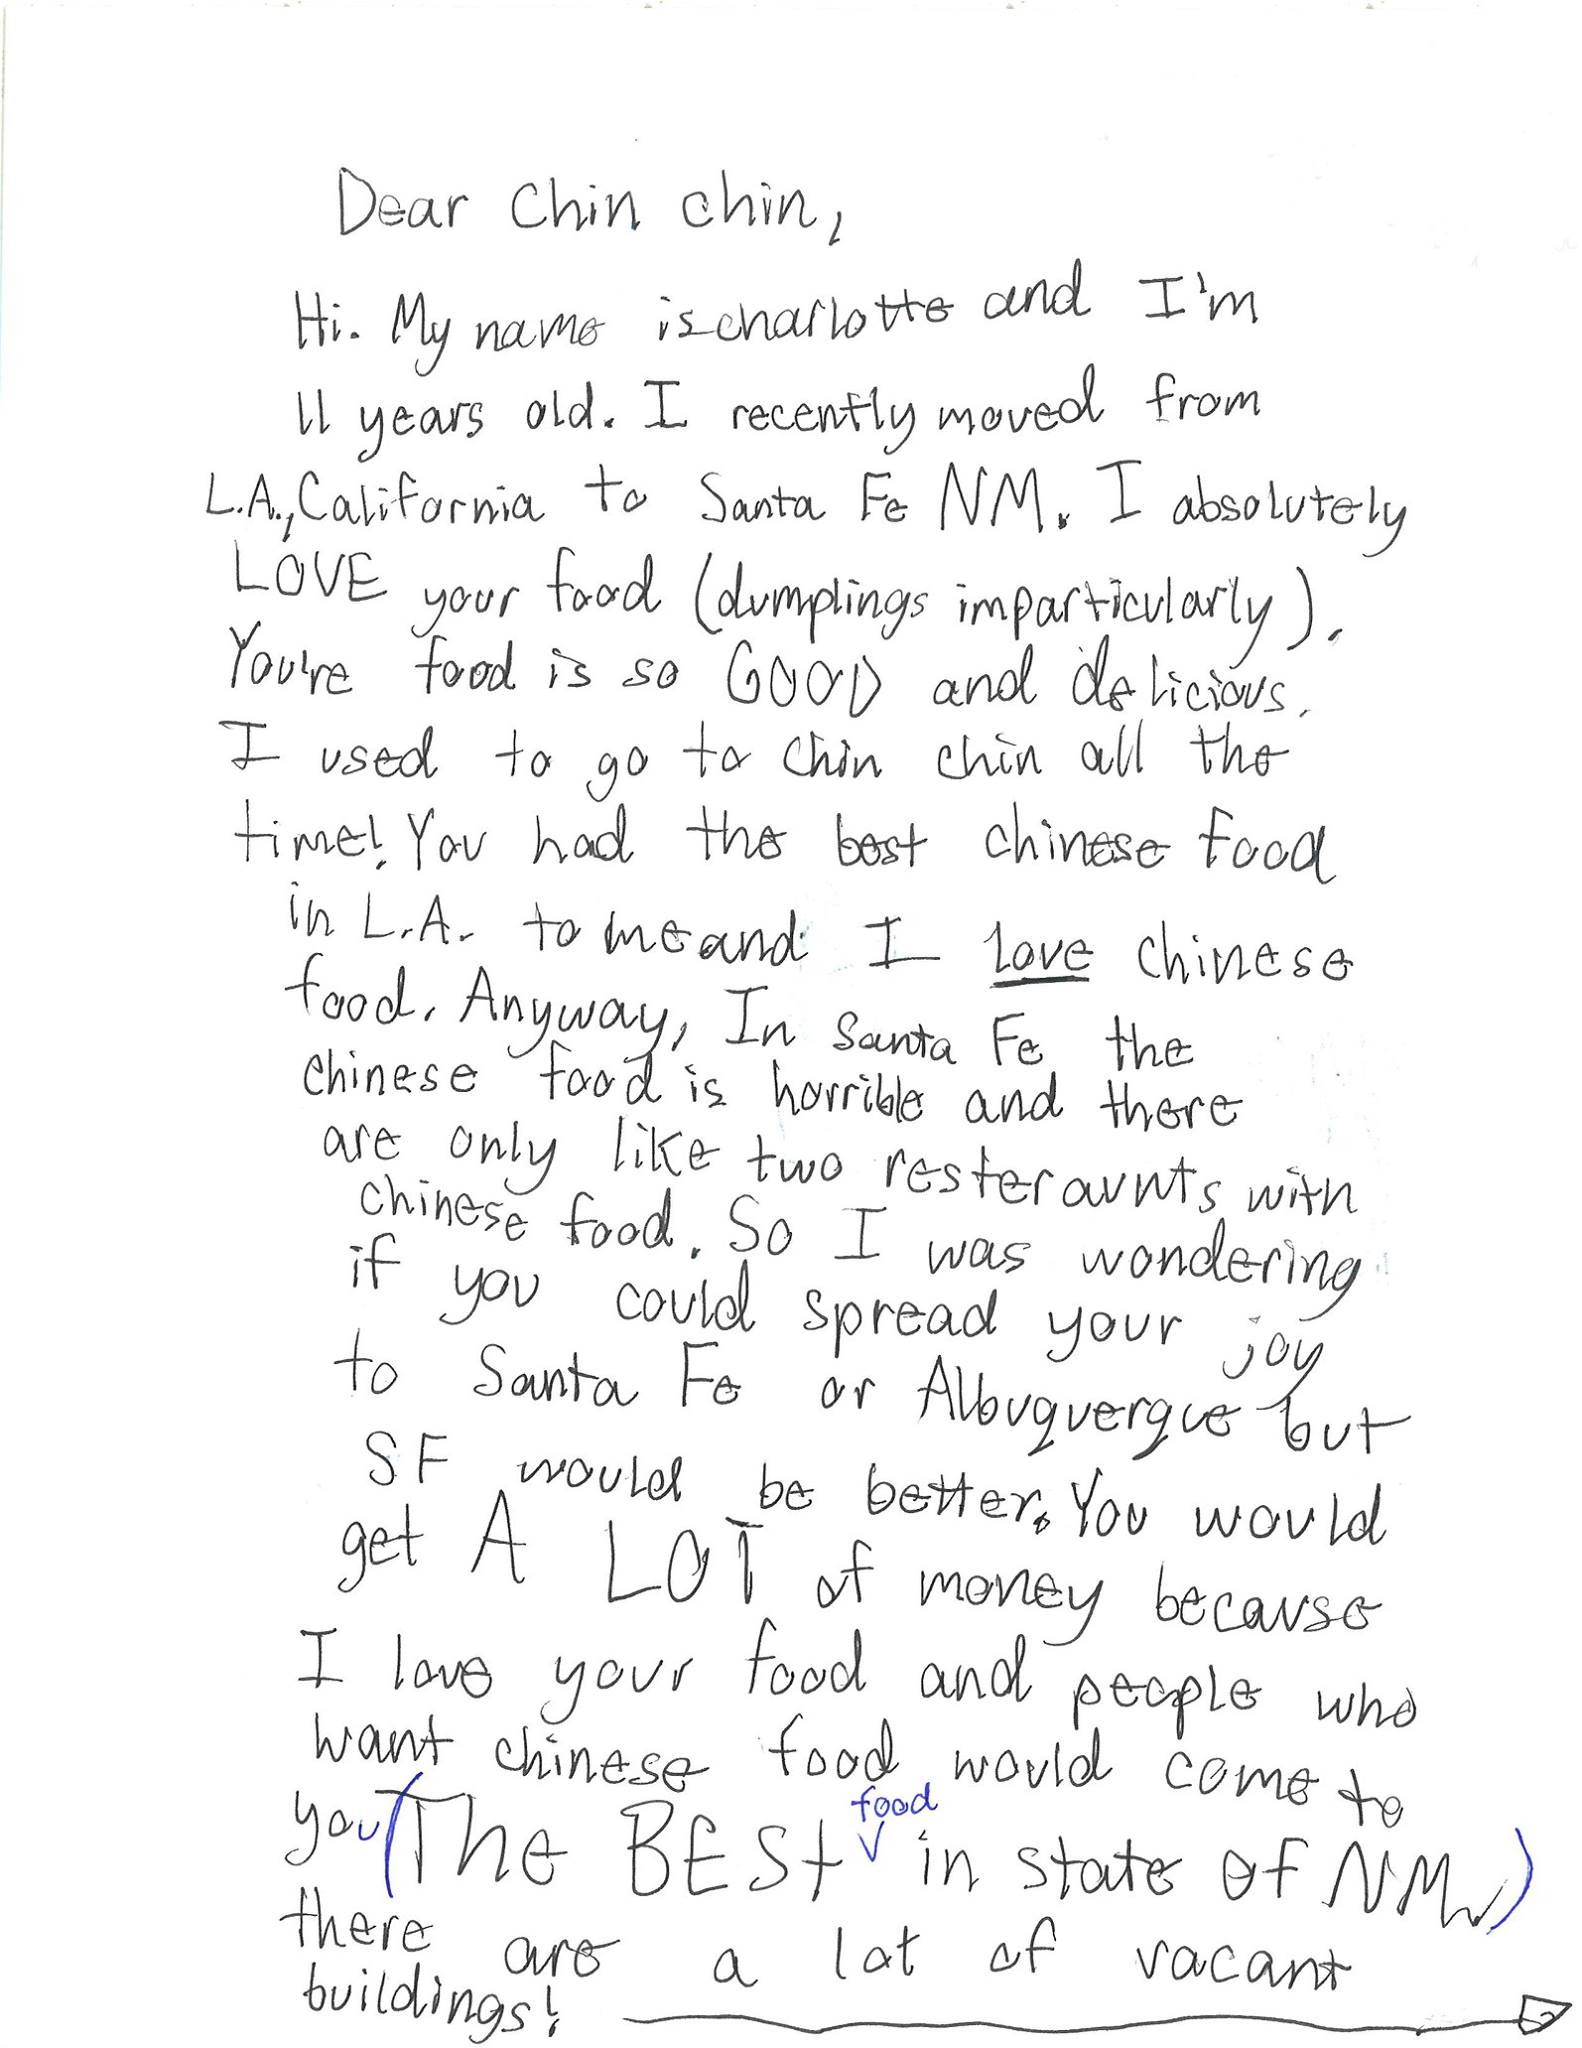 Dear Chin chin,
Hi. My name is charlotte and I'm
11 years old. I recently moved from
L.A., California to Santa Fe NM. I absolutely
LOVE your food (dumplings imparticularly).
You're food is so GOOD and delicious.
I used to go to Chin chin all the
time! You had the best chinese food
in L.A. to me and I love chinese
food. Anyway, In Santa Fe the
chinese food is horrible and there
are only like two resteraunts with
chinese food. So I was wondering
if you could spread your joy
to Santa Fe or Albuquerque but
SF would be better. You would
get A LOT of money because
I love your food and people who
want chinese food would come to
you (The BEST food in state of NM)
there are a lot of vacant
buildings!